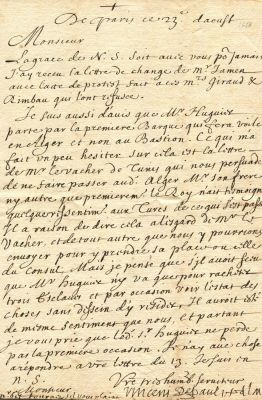 De Paris ce 23e d'aoust
Monsieur
La grace de N. S. soit avec vous po' jamais
J'ay receu la lettre de change de mrs Samen
avec l'acte de protest fait a ces mrs Giraud &
Rimbau qui l'ont refusée.
Je suis aussi davis que Mr Huguier
parte par la premiere Barque qui fera voile
en Alger et non au Bastion. Ce qui m'a
fait un peu hesiter sur cela est la lettre
de Mr le vacher de Tunis qui nous persuade
de ne faire passer aud. Alger Mr son frere
ny autre que premieremt le Roy n'ait tesmoigné
quelque ressentimt aux Turcs de ce qui s'est passé
Il a raison de dire cela a l'egard de mr le
Vacher, et de tout autre que nous y pourrions
envoyer pour y prendre sa place ou elle
du Consul. Mais je pense que s'il avoit sceu
que Mr Huguier n'y va que pour rachepter
trois Esclaves et par occasion voir l'estat des
choses sans dessein d'y resider. Il auroit esté
de mesme sentiment que nous, et partant
je vous prie que led. sr Huguier ne perde
pas la premiere occasion. Je n'ay autre chose
a repondre a vre lettre du 13. Je suis en
n. S.
Monsieur
Vre tres humb. serviteur
Vincent Depaul